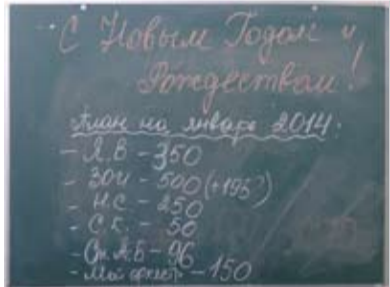 С Новым Годом и
Рождеством!
План на январь 2014:
- Я.В - 350
- ЗОИ - 500 (+195?)
- Н.С - 250
- С.К. - 50
- Оп. А.Б - 96
- Мой оркестр - 150